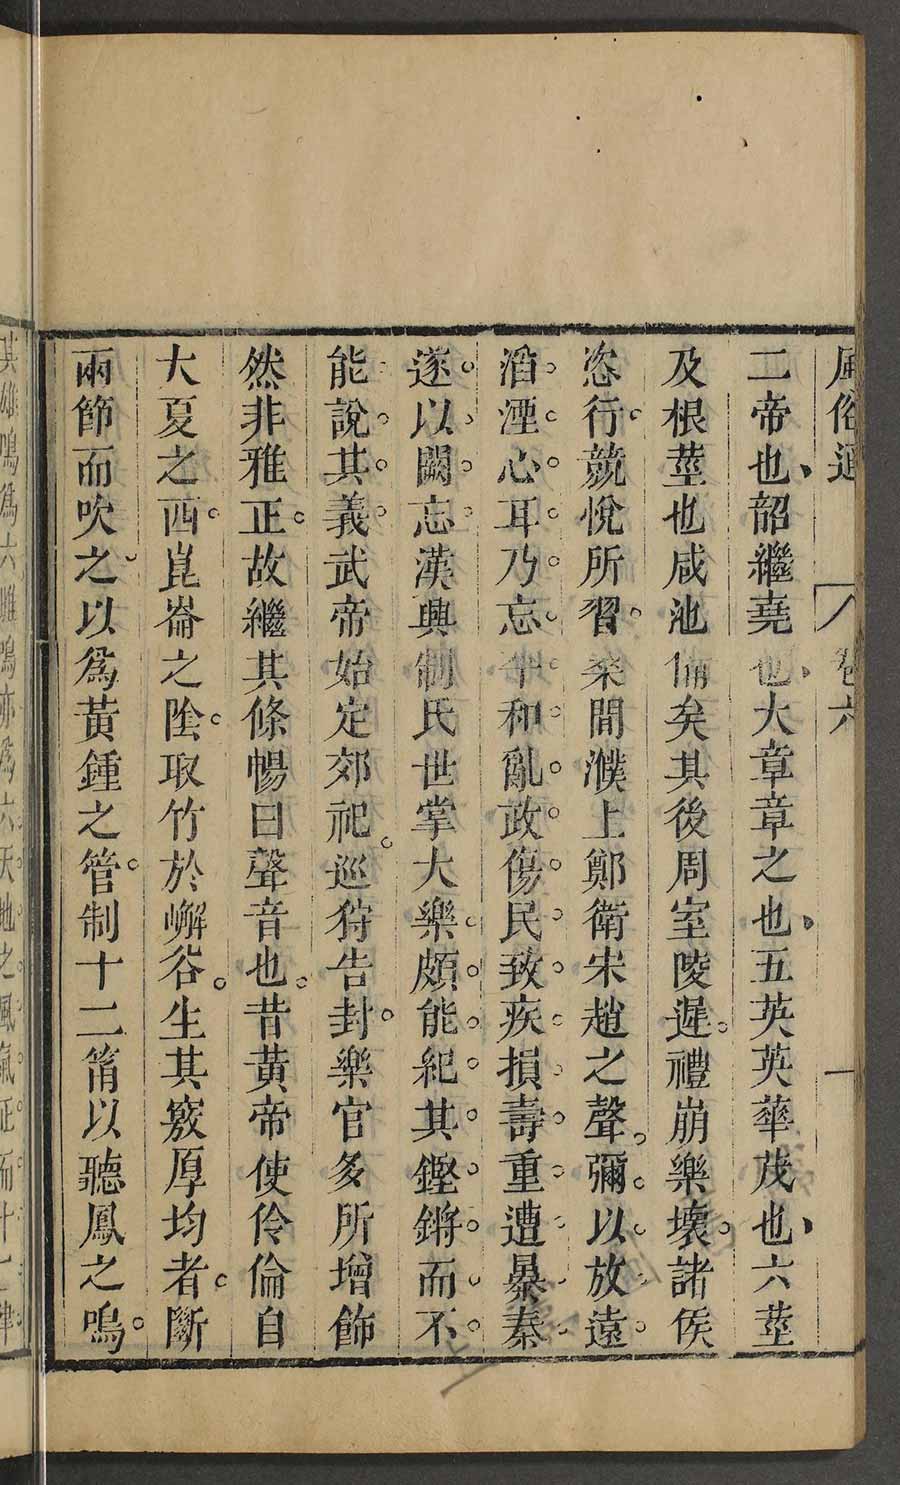 風俗通 卷六 一
二帝也韶繼堯也大章章之也五英英華茂也六莖
及根莖也咸池備矣其後周室陵遲禮崩樂壞諸侯
恣行競悅所習桒間濮上鄭衛宋趙之聲彌以放遠
滔湮心耳乃忘平和亂政傷民致疾損壽重遭暴秦
遂以闕忘漢興制氏世掌大樂頗能紀其鏗鏘而不
能說其義武帝始定郊祀巡狩告封樂官多所增飾
然非雅正故繼其條暢曰聲音也昔黃帝使伶倫自
大夏之西崑崙之陰取竹於嶰谷生其竅厚均者斷
兩節而吹之以爲黃鍾之管制十二筩以聽鳳之鳴
其雄鳴爲六雌鳴亦爲六天地之風氣正而十二律